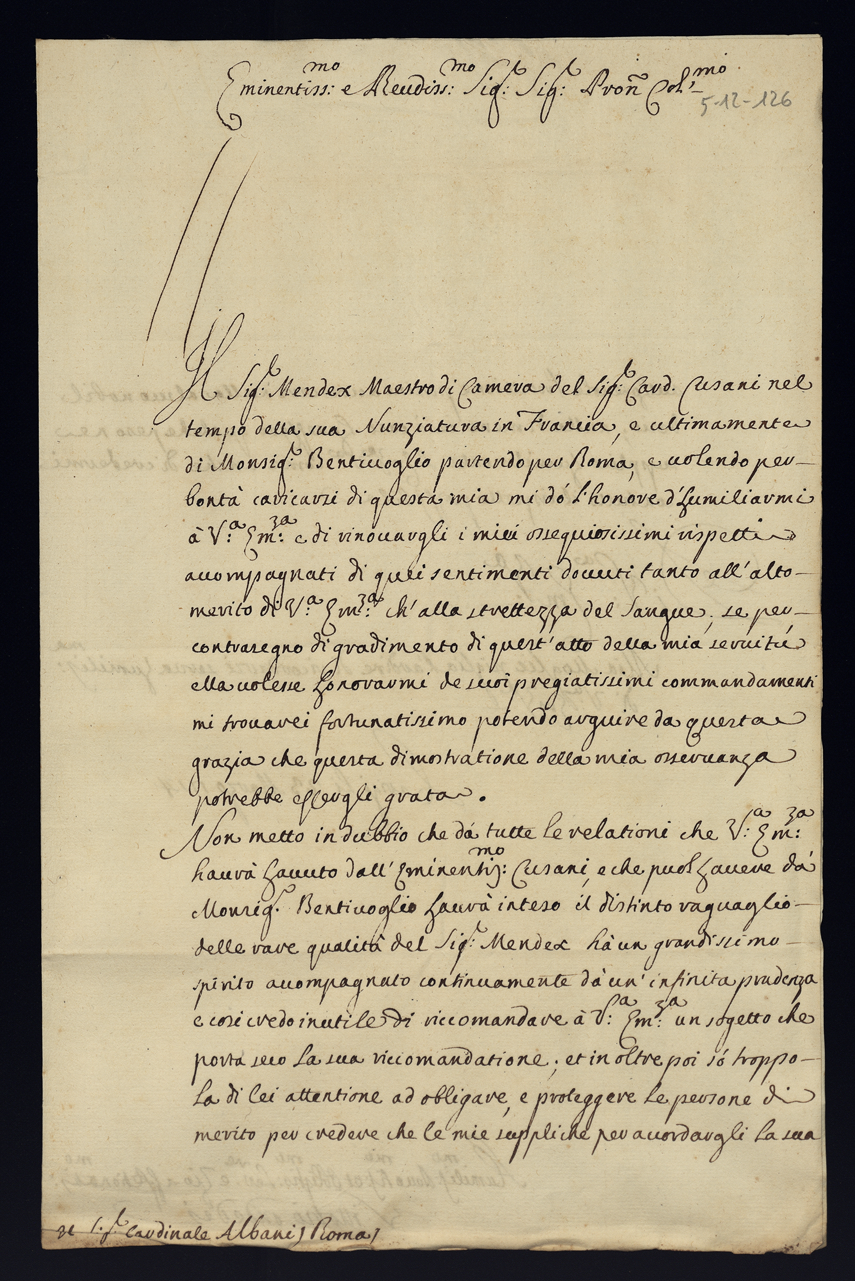 Eminentiss:mo e Reudiss:mo Sigr: Sigr: Pron Col:mo
5-12-126
Il Sigr: Mendex Maestro di Camera del Sigr: Card. Cusani nel
tempo della sua Nunziatura in Francia, e ultimamente
di Monsigr: Bentiuoglio partendo per Roma, e uolendo per
bontà caricarsi di questa mia mi dó l'honore d'humiliarmi
à V:a Em:za e di rinouargli i miei ossequiosissimi rispetti
accompagnati di quei sentimenti douuti tanto all'alto
merito di V:a Em:za ch'alla strettezza del Sangue; se per
contrasegno di gradimento di quest'atto della mia seruitú
ella uolesse honorarmi de suoi pregiatissimi commandamenti
mi trouarei fortunatissimo potendo arguire da questa
grazia che questa dimostratione della mia osseruanza
potrebbe essergli grata.
Non metto in dubbio che dà tutte le relationi che V:a Em:za
haurà hauuto dall'Eminentiss:mo Cusani, e che puol hauere dà
Monsigr: Bentiuoglio haurà inteso il distinto raguaglio
delle rare qualità del Sigr: Mendex hà un grandissimo
spirito accompagnato continuamente dà un'infinita prudenza
e cosi credo inutile di riccomandare à V:a Em:za un sogetto che
porta seco la sua riccomandatione; et in oltre poi só troppo
la di lei attentione ad obligare, e proteggere le persone di
merito per credere che le mie suppliche per accordargli la sua
Sr: Cardinale Albani) Roma)